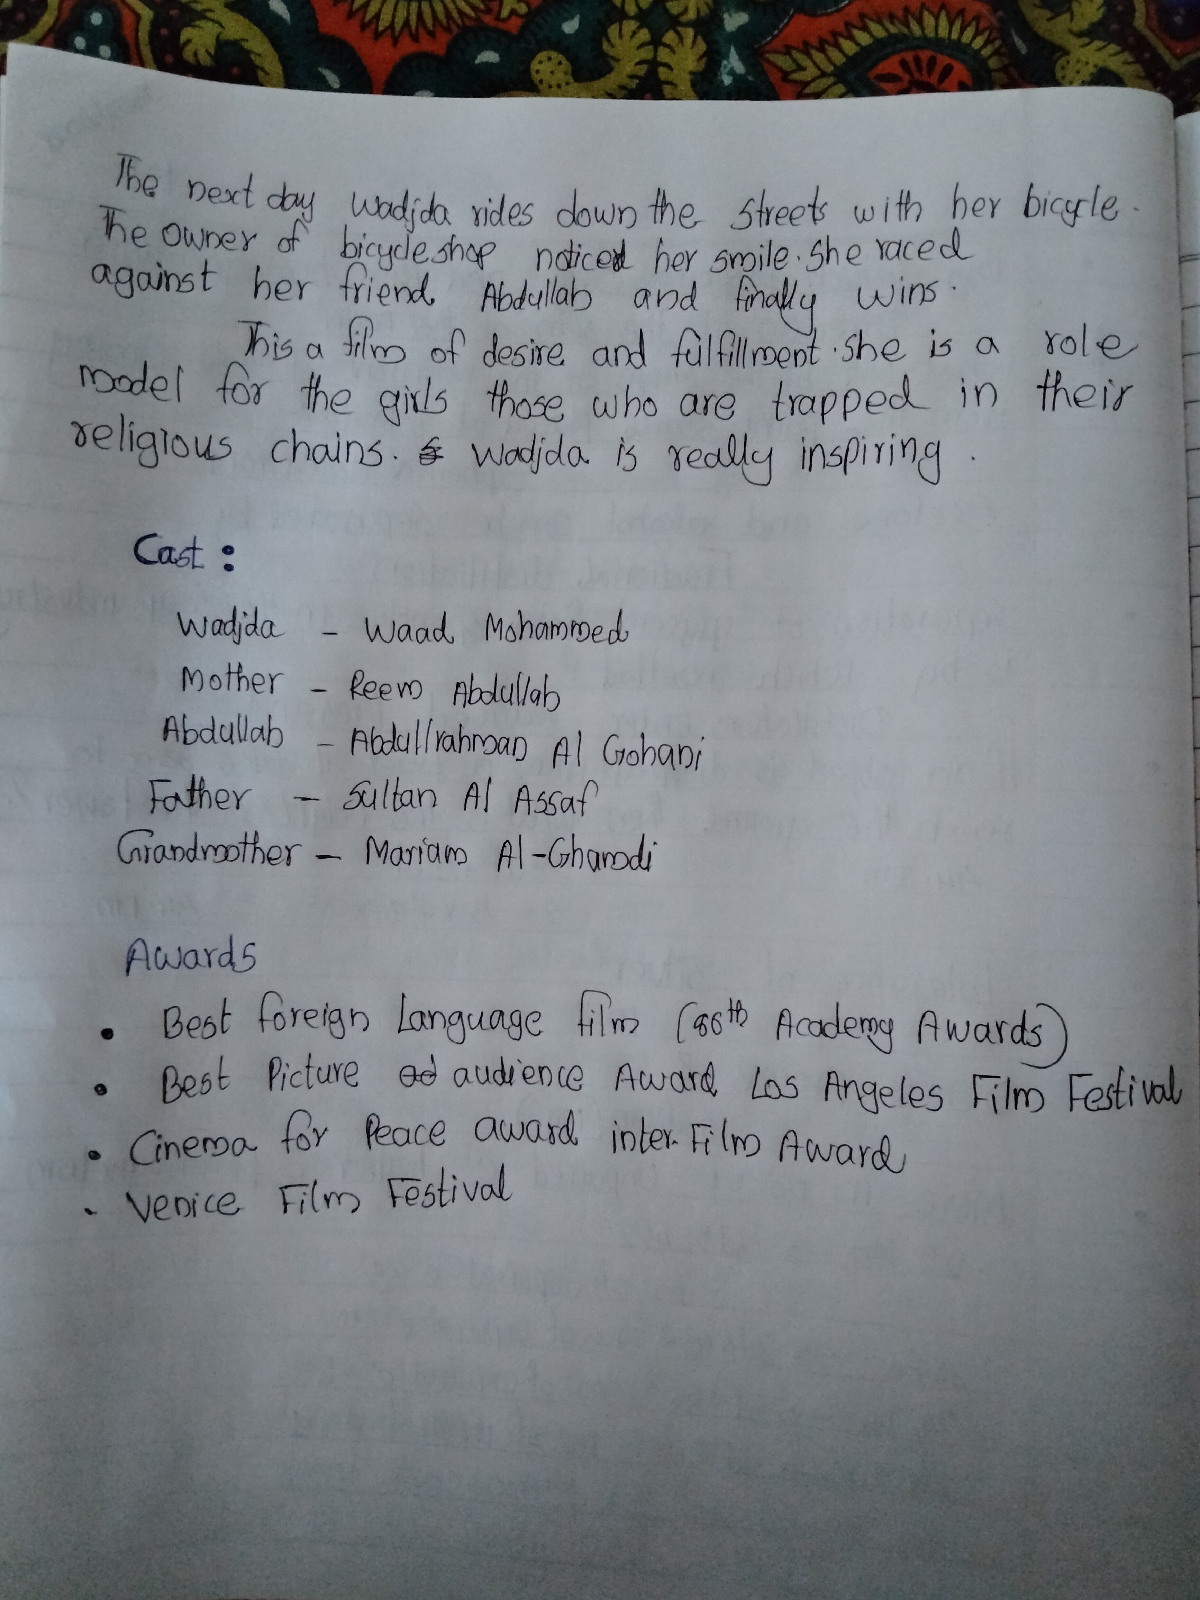 The next day Wadjda rides down the streets with her bicycle.
The owner of bicycle shop noticed her smile. She raced
against her friend Abdullah and finally wins.
This a film of desire and fulfillment. She is a role
model for the girls those who are trapped in their
religious chains. Wadjda is really inspiring.
Cast :
Wadjda - Waad Mohammed
Mother - Reem Abdullah
Abdullah - Abdullrahman Al Gohani
Father - Sultan Al Assaf
Grandmother - Mariam Al-Ghamdi
Awards
• Best foreign Language film (86th Academy Awards)
• Best Picture audience Award Los Angeles Film Festival
• Cinema for Peace award inter. Film Award
• Venice Film Festival